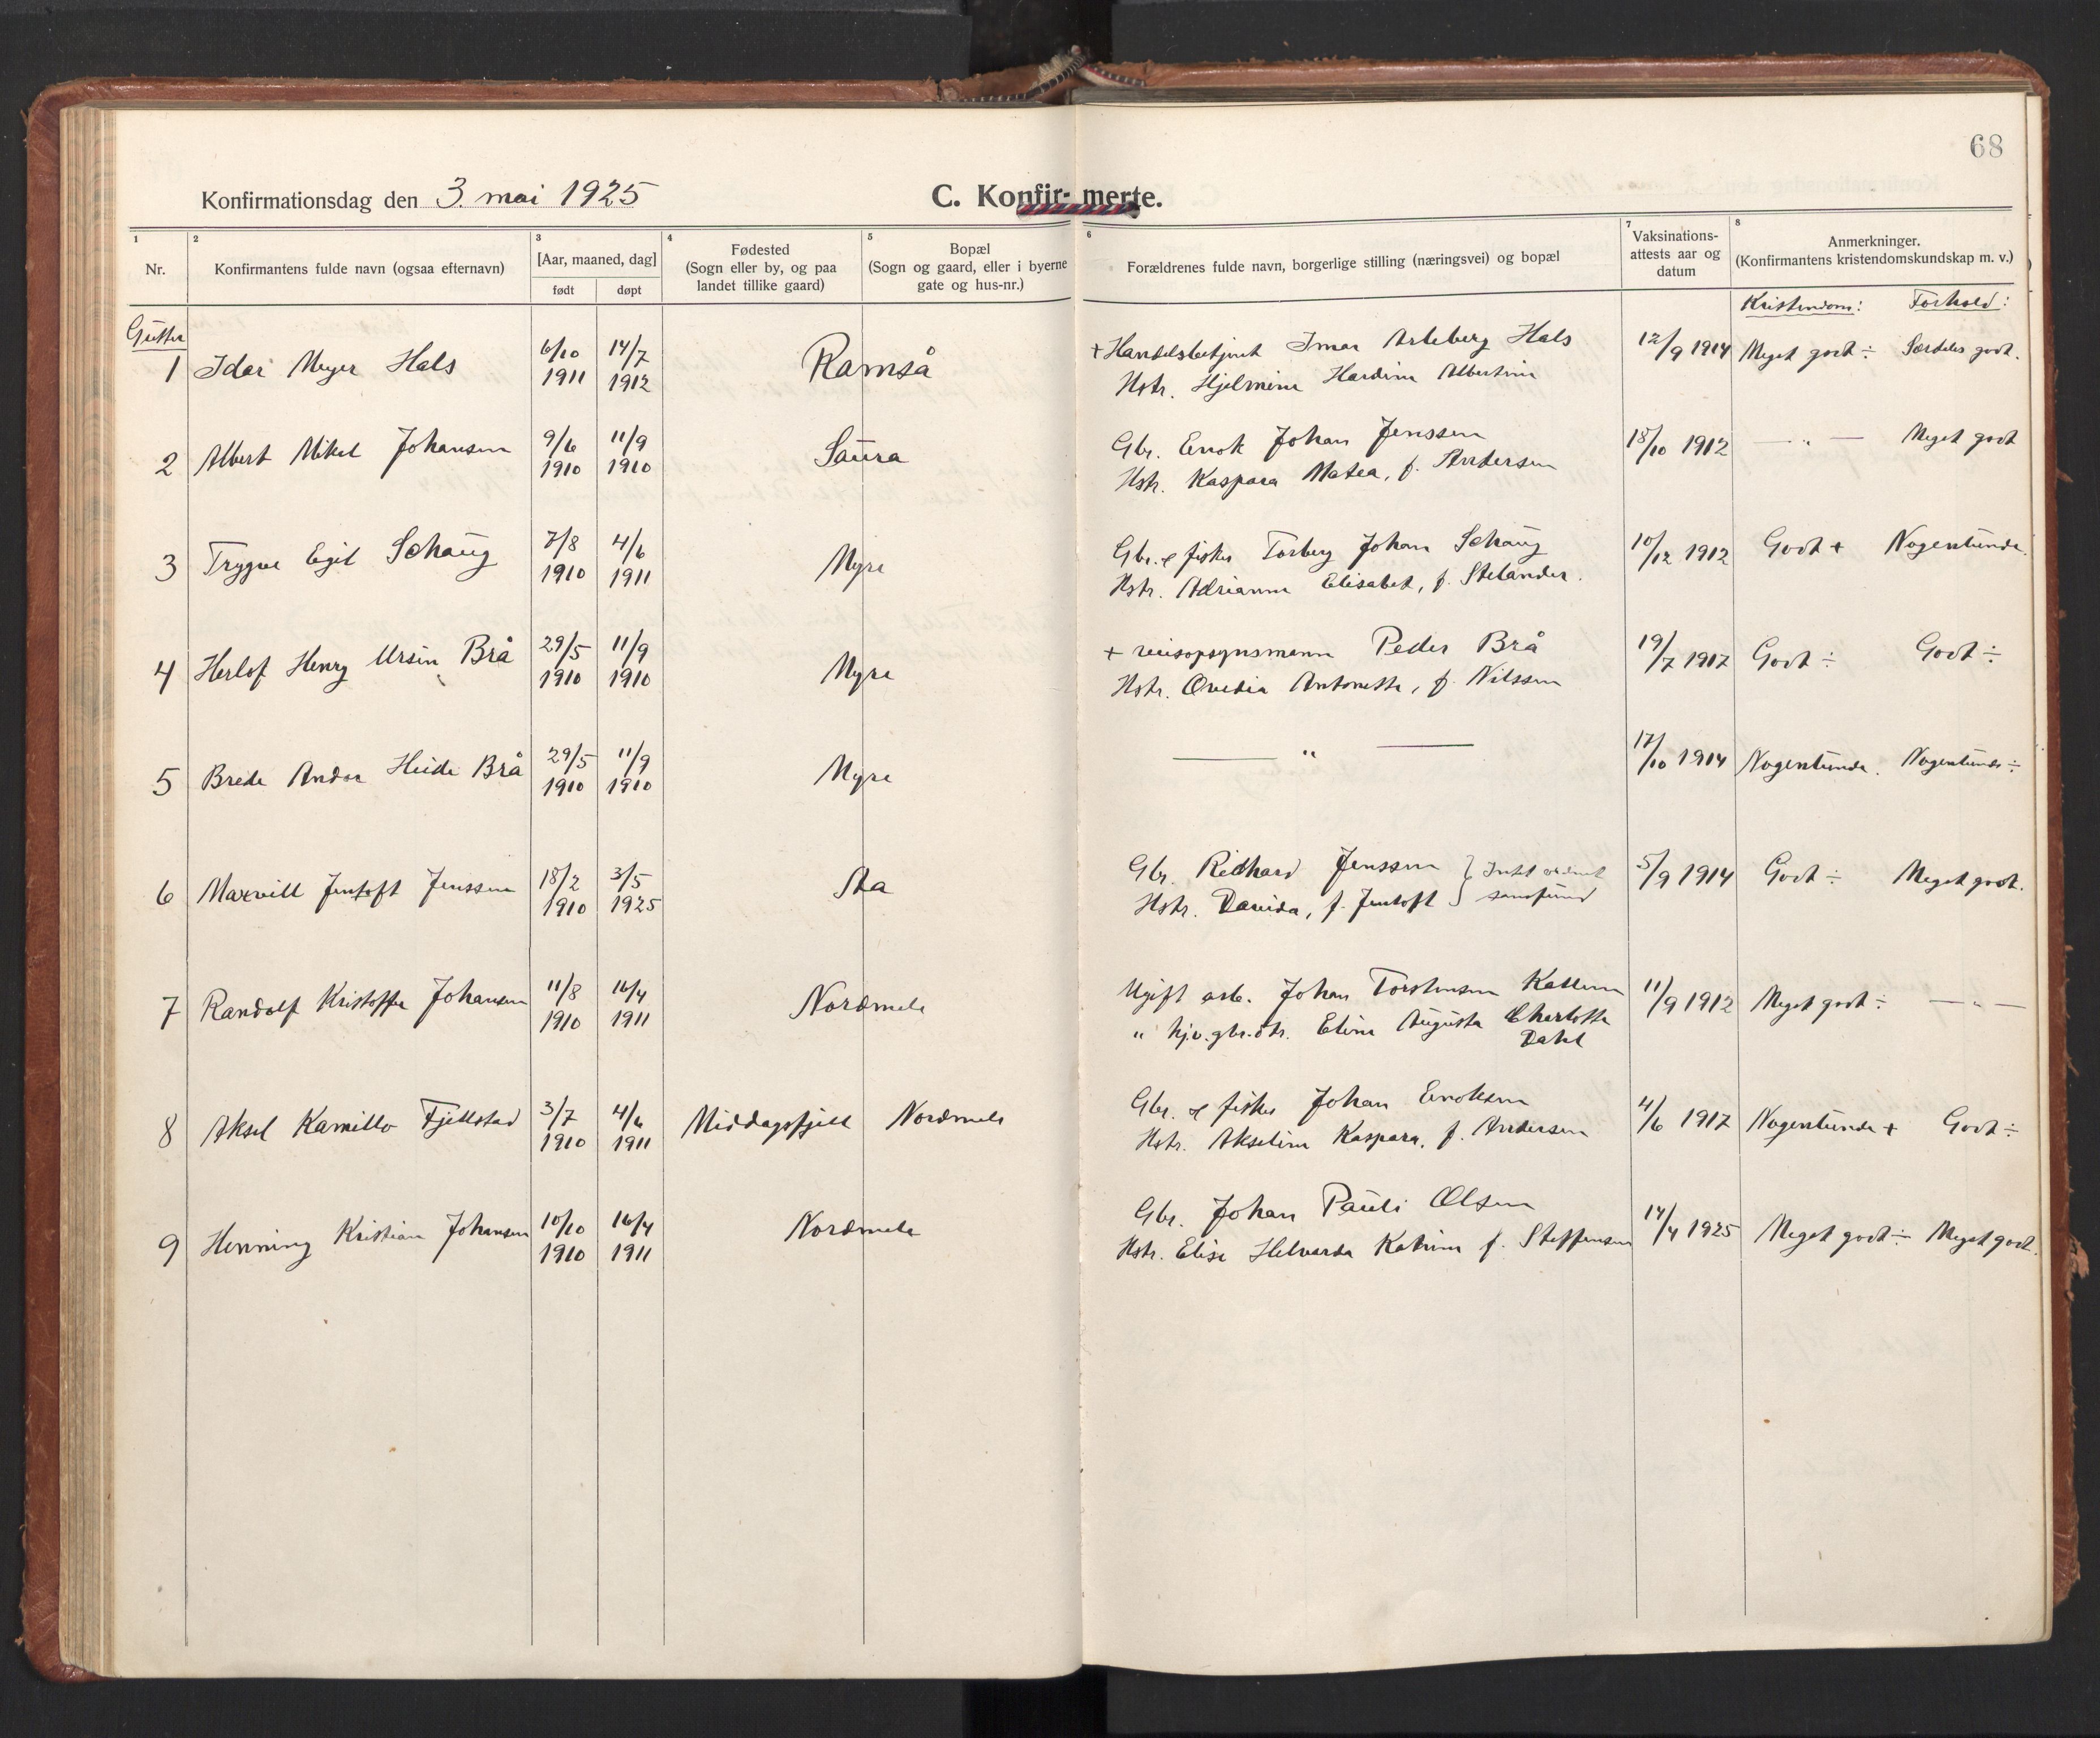 68
Konfirmationsdag den 3. mai 1925
C. Konfir- merte.
1 2 3 4 5 6 7 8
Nr.
Konfirmantens fulde navn (ogsaa efternavn)
[Aar, maaned, dag]
født døpt
Fødested
(Sogn eller by, og paa
landet tillike gaard)
Bopæl
(Sogn og gaard, eller i byerne
gate og hus-nr.)
Forældrenes fulde navn, borgerlige stilling (næringsvei) og bopæl
Vaksinations-
attests aar og
datum
Anmerkninger.
(Konfirmantens kristendomskundskap m. v.)
Kristendom: Forhold:
Gutter
1 Idar Meyer Hals 6/10 1911 14/7 1912 Ramså
+ Handelsbetjent Imar Arleberg Hals 12/9 1914 Meget godt ÷ Særdeles godt.
Hstr. Hjelmine Hardine Albertine
2 Albert Mikal Johansen 9/6 1910 11/9 1910 Saura
Gbr. Enok Johan Jenssen 18/10 1912 — " — Meget godt
Hstr. Kaspara Matea, f. Andersen
3 Trygve Egil Schaug 7/8 1910 4/6 1911 Myre
Gbr. & fisker Torberg Johan Schaug 10/12 1912 Godt + Nogenlunde.
Hstr. Adrianne Elisabet, f. Stelander.
4 Herlof Henry Ursin Brå 29/5 1910 11/9 1910 Myre
+ reisopsynsmann Peder Brå 19/7 1917 Godt ÷ Godt ÷
Hstr. Ovedia Antonette, f. Nilssen
5 Brede Andor Heide Brå 29/5 1910 11/9 1910 Myre
— " — 17/10 1914 Nogenlunde. Nogenlunde ÷
6 Maxvill Jentoft Jenssen 18/2 1910 3/5 1925 Aa
Gbr. Richard Jenssen } 5/9 1914 Godt ÷ Meget godt.
Hstr. Davida, f. Jentoft } samfund
7 Randolf Kristoffer Johansen 11/8 1910 16/4 1911 Nordmela
Ugift arb. Johan Torstensen 11/9 1912 Meget godt ÷ — " —
" hj.v. gbr.dtr. Eline Augusta Charlotte
Dahl
8 Aksel Kamillo Fjellstad 3/7 1910 4/6 1911 Middagsfjell Nordmela
Gbr. & fisker Johan Enoksen 4/6 1917 Nogenlunde + Godt ÷
Hstr. Akseline Kaspara, f. Andersen
9 Henning Kristian Johansen 10/10 1910 16/4 1911 Nordmela
Gbr. Johan Pauli Olsen 14/4 1925 Meget godt ÷ Meget godt.
Hstr. Elise Helvarda Katrine f. Steffensen